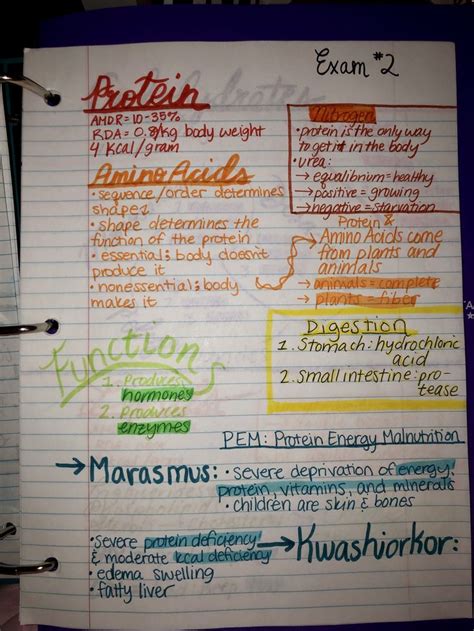 Exam #2
Protein
AMDR = 10-35%
RDA = 0.8/kg body weight
4 Kcal/gram
Nitrogen
• protein is the only way
to get it in the body
• urea:
→ equalibrium = healthy
→ positive = growing
→ negative = starvation
Amino Acids
• sequence/order determines
shape↓
• shape determines the
function of the protein
• essential: body doesn't
produce it
• nonessential: body
makes it
Protein &
Amino Acids come
from plants and
animals
→ animals = complete
→ plants = fiber
Function
1. Produces
hormones
2. Produces
enzymes
Digestion
1. Stomach: hydrochloric
acid
2. Small intestine: pro-
tease
PEM: Protein Energy Malnutrition
→ Marasmus: • severe deprivation of energy,
protein, vitamins, and minerals
• children are skin & bones
• Severe protein deficiency → Kwashiorkor:
& moderate kcal deficiency
• edema swelling
• fatty liver